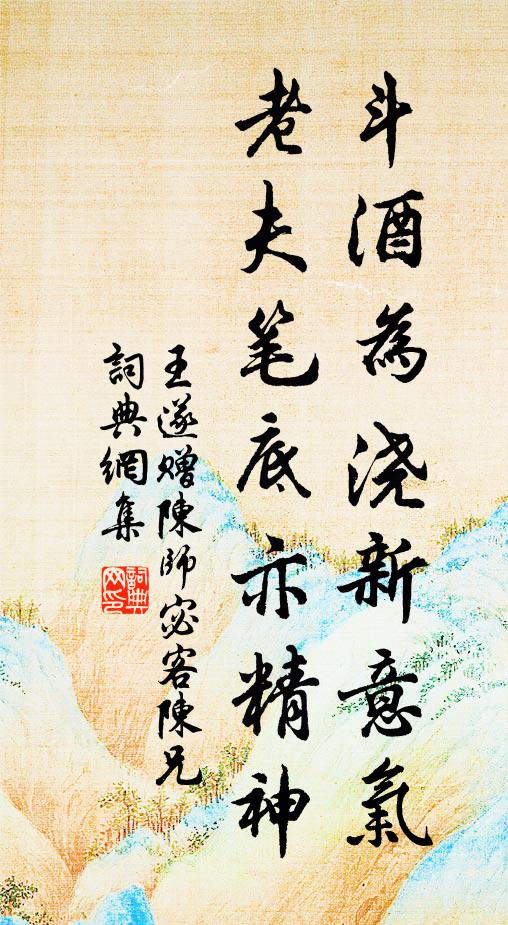 斗酒為浇新意氣
老夫笔底亦精神
王遂贈陳師宓客陳兄
詞典網集
詞典网印